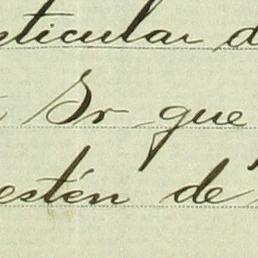 sticular d
Sr que
estén de